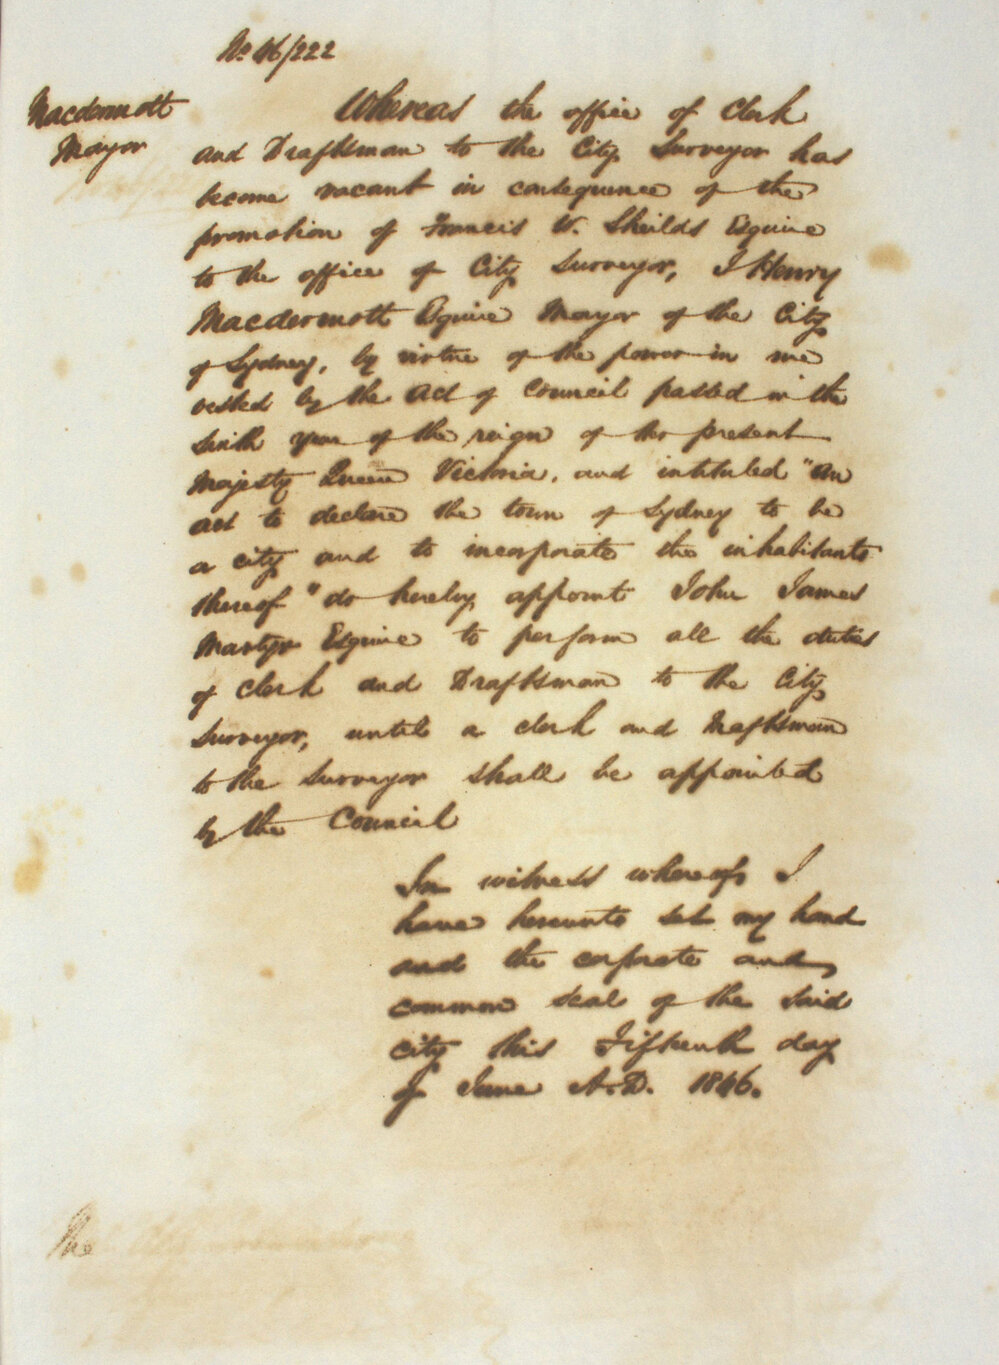 No 46/222
Macdermott
Mayor
Whereas the office of Clerk
and Draftsman to the City Surveyor has
become vacant in consequence of the
promotion of Francis W. Sheilds Esquire
to the office of City Surveyor, I Henry
Macdermott Esquire Mayor of the City
of Sydney, by virtue of the power in me
vested by the Act of Council passed in the
Sixth year of the reign of Her present
Majesty Queen Victoria, and intituled "An
act to declare the town of Sydney to be
a city and to incorporate the inhabitants
thereof" do hereby appoint John James
Martyr Esquire to perform all the duties
of Clerk and Draftsman to the City
Surveyor, until a clerk and Draftsman
to the Surveyor shall be appointed
by the Council
In witness whereof, I
have hereunto set my hand
and the corporate and
common seal of the said
city this Fifteenth day
of June A.D. 1846.
The